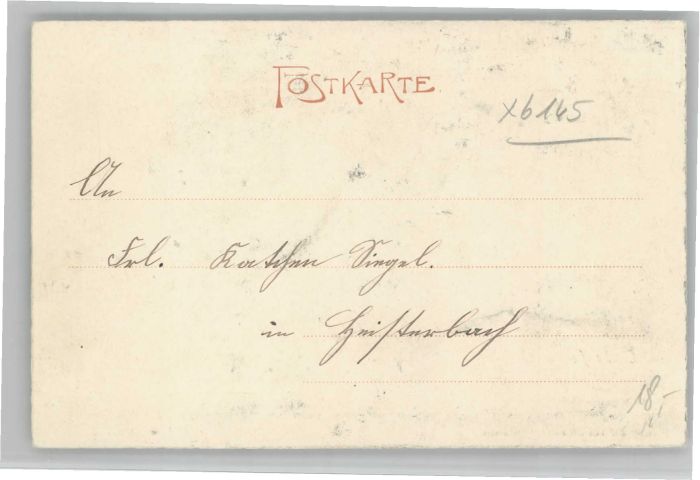 POSTKARTE
xb 145
An
Frl. Katchen Siegel.
in Heisterbach
18,-